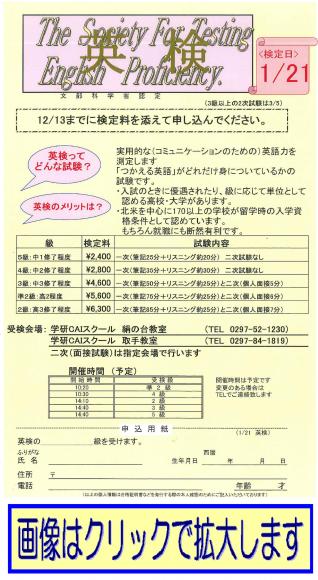 The Society For Testing
English Proficiency.
英 検
文 部 科 学 省 認 定
<検定日>
1/21
(3級以上の2次試験は3/5)
12/13までに検定料を添えて申し込んでください。
英検って
どんな試験?
実用的な(コミュニケーションのための)英語力を
測定します
「つかえる英語」がどれだけ身についているかの
試験です。
英検のメリットは?
・入試のときに優遇されたり、級に応じて単位として
認める高校・大学があります。
・北米を中心に170以上の学校が留学時の入学資
格条件として認めています。
もちろん就職にも断然有利です。
級 検定料 試験内容
5級:中1修了程度 ¥2,400 一次(筆記25分+リスニング約20分) 二次試験なし
4級:中2修了程度 ¥2,800 一次(筆記35分+リスニング約30分) 二次試験なし
3級:中3修了程度 ¥4,600 一次(筆記50分+リスニング約25分)と二次(個人面接5分)
準2級:高2程度 ¥5,600 一次(筆記75分+リスニング約25分)と二次(個人面接6分)
2級:高3修了程度 ¥6,300 一次(筆記85分+リスニング約25分)と二次(個人面接7分)
受検会場: 学研CAIスクール 絹の台教室 (TEL 0297-52-1230)
学研CAIスクール 取手教室 (TEL 0297-84-1819)
二次(面接試験)は指定会場で行います
開催時間 (予定)
開始時間 受検級
10:20 準2級
10:30 4級
14:10 2級
14:40 3級
14:40 5級
開催時間は予定です
変更のある場合は
TELでご連絡致します
申 込 用 紙
(1/21 英検)
英検の 級を受けます。
ふりがな
氏 名
西暦
生年月日 年 月 日
住所 〒
電話
年齢 才
(以上の個人情報は合格証明書などを発行する際の本人確認のためにご記入いただいております)
画像はクリックで拡大します